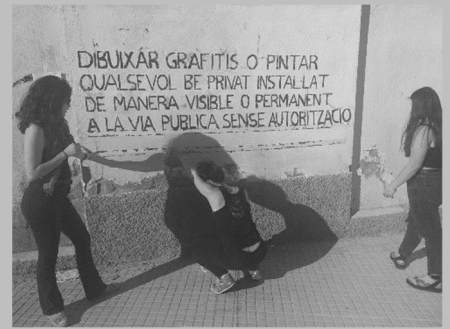 DIBUIXAR GRAFITIS O PINTAR
QUALSEVOL BE PRIVAT INSTAL·LAT
DE MANERA VISIBLE O PERMANENT
A LA VIA PUBLICA SENSE AUTORITZACIO